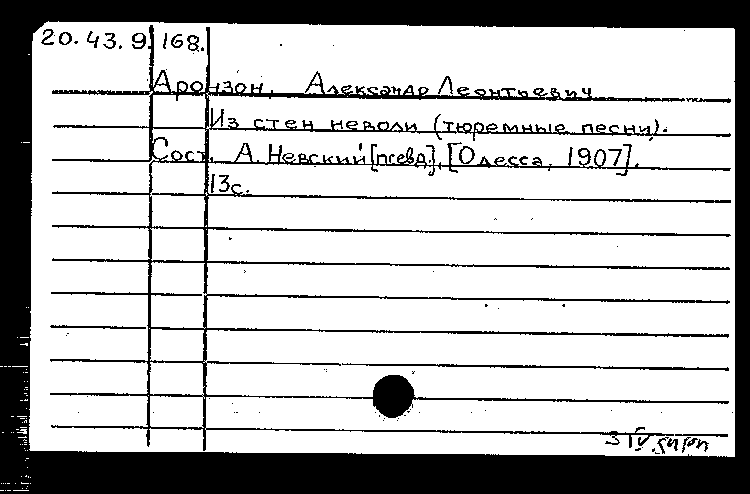 20. 43. 9. 168.
Аронзон, Александр Леонтьевич
Из стен неволи (тюремные песни).
Сост. А. Невский [псевд]. [Одесса, 1907].
13с.
3 IV